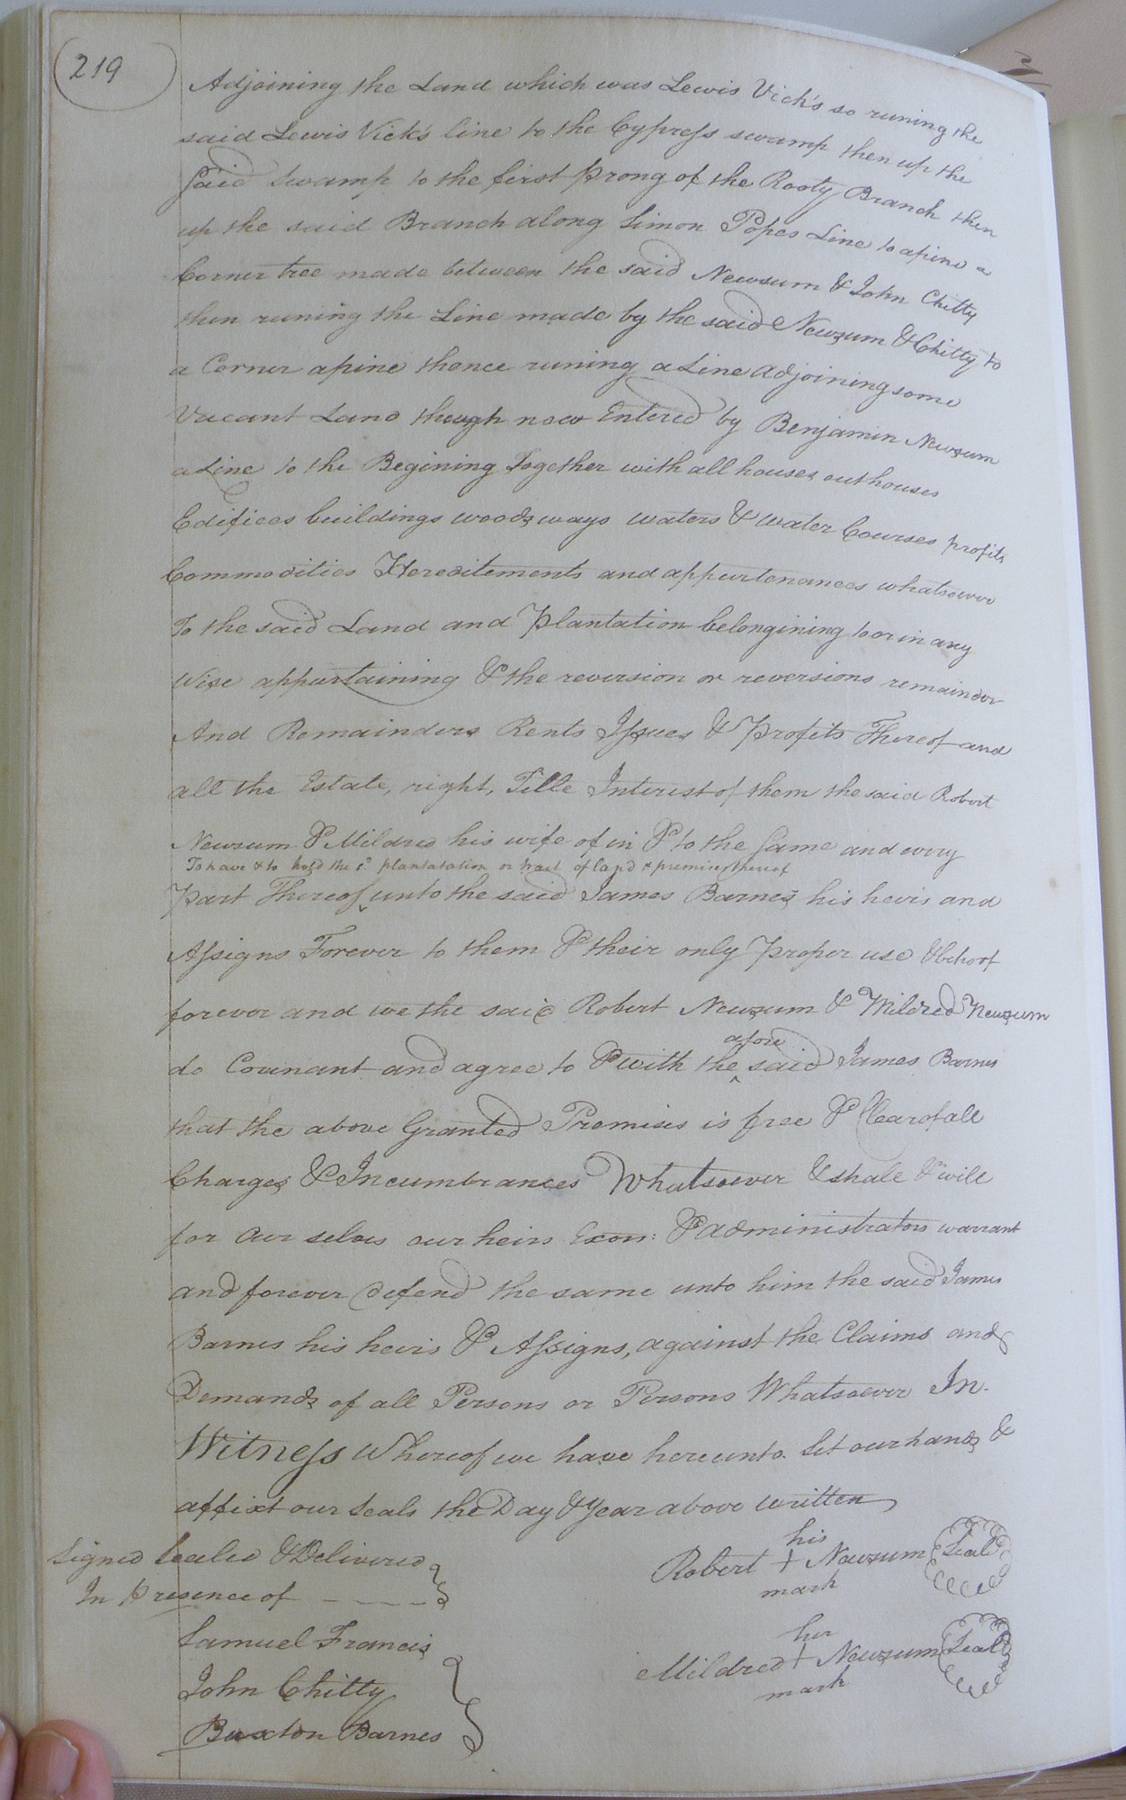 219
Adjoining the Land which was Lewis Vick's so runing the
said Lewis Vick's line to the Cypress swamp then up the
said swamp to the first prong of the Rooty Branch then
up the said Branch along Simon Popes Line to a pine a
Corner tree made between the said Newsum & John Chitty
then runing the Line made by the said Newsum & Chitty to
a Corner a pine thence runing a Line Adjoining some
Vacant Land though now Entered by Benjamin Newsum
a Line to the Begining Together with all houses outhouses
Edifices buildings woods ways waters & water Courses profits
Commodities Hereditements and appurtenances whatsoever
To the said Land and Plantation belongining to or in any
Wise appurtaining & the reversion or reversions remainder
And Remainders Rents Issues & Profits Thereof and
all the Estate, right, Title Interest of them the said Robert
Newsum & Mildred his wife of in & to the same and every
To have & to hold the sd. plantatation or tract of land & premises thereof
Part Thereof ^ unto the said James Barnes his heirs and
Assigns Forever to them & their only Proper use & behoof
forever and we the said Robert Newsum & Mildred Newsum
afore
do Covinant and agree to & with the ^ said James Barnes
that the above Granted Premises is free & Clear of all
Charges & Incumbrances Whatsoever & shall & will
for Our selves our heirs Exors: & administrators warrant
and forever defend the same unto him the said James
Barnes his heirs & Assigns, against the Claims and
Demands of all Persons or Persons Whatsoever In
Witness Whereof we have hereunto Set our hands &
affixt our Seals the Day & Year above written
Signed Sealed & Delivered
In Presence of
his
Robert + Newsum Seal
mark
Samuel Francis
her
Mildred + Newsum Seal
mark
John Chitty
Buxton Barnes